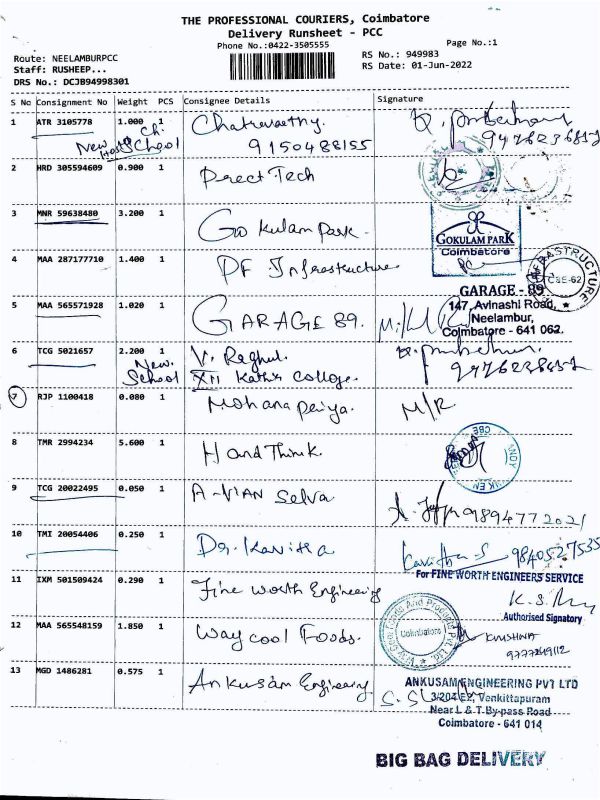 THE PROFESSIONAL COURIERS, Coimbatore
Delivery Runsheet - PCC
Phone No.:0422-3505555
Page No.:1
Route: NEELAMBURPCC
Staff: RUSHEEP...
DRS No.: DCJB94998301
RS No.: 949983
RS Date: 01-Jun-2022
S No Consignment No Weight PCS Consignee Details Signature
1 ATR 3105778 1.000 1 Chakravarthy.
New School
9150488155
2 HRD 305594609 0.900 1 Prect Tech
3 MNR 59638480 3.200 1 Go kulam Park.
GOKULAM PARK
Coimbatore
4 MAA 287177710 1.400 1 PF Infrastructure
INFRASTRUCTURE
CBE-62
5 MAA 565571928 1.020 1 GARAGE 89.
GARAGE - 89
147, Avinashi Road,
Neelambur,
Coimbatore - 641 062.
6 TCG 5021657 2.200 1 V. Raghul.
New School
XII Kathir College.
7 RJP 1100418 0.080 1 Mohana priya. M/R
8 TMR 2994234 5.600 1 Hand Think.
CBE
9 TCG 20022495 0.050 1 A-VIAN Selva
9894772021
10 TMI 20054406 0.250 1 Dr. Kavitha
Kavitha-S 9840527535
11 IXM 501509424 0.290 1 Fine worth Engineering
For FINE WORTH ENGINEERS SERVICE
Authorised Signatory
12 MAA 565548159 1.850 1 Way cool Foods.
Coimbatore
KRISHNA
13 MGD 1486281 0.575 1 Ankusam Engineering
ANKUSAM ENGINEERING PVT LTD
3/204-E2, Venkittapuram
Near L & T By-pass Road
Coimbatore - 641 014
BIG BAG DELIVERY